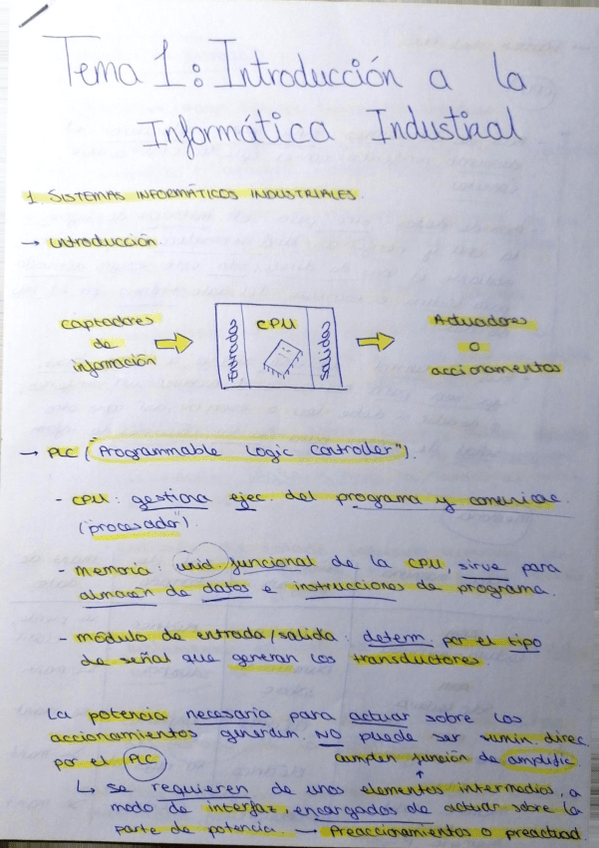 Tema 1: Introducción a la
Informática Industrial
1. SISTEMAS INFORMÁTICOS INDUSTRIALES.
→ Introducción
captadores
de
información
Entradas
CPU
Salidas
Actuadores
o
accionamentos
→ PLC ("Programmable Logic Controller").
- CPU: gestiona ejec. del programa y comunicac.
("procesador").
- Memoria: unid. funcional de la CPU, sirve para
almacén de datos e instrucciones de programa.
- módulo de entrada/salida: determ. por el tipo
de señal que generan los transductores.
La potencia necesaria para actuar sobre los
accionamientos generalm. NO puede ser sumin. direc.
por el PLC
cumplen función de amplific.
↑
↳ se requieren de unos elementos intermedios, a
modo de interfaz, encargados de actuar sobre la
parte de potencia. → Preaccionamientos o preactuad.